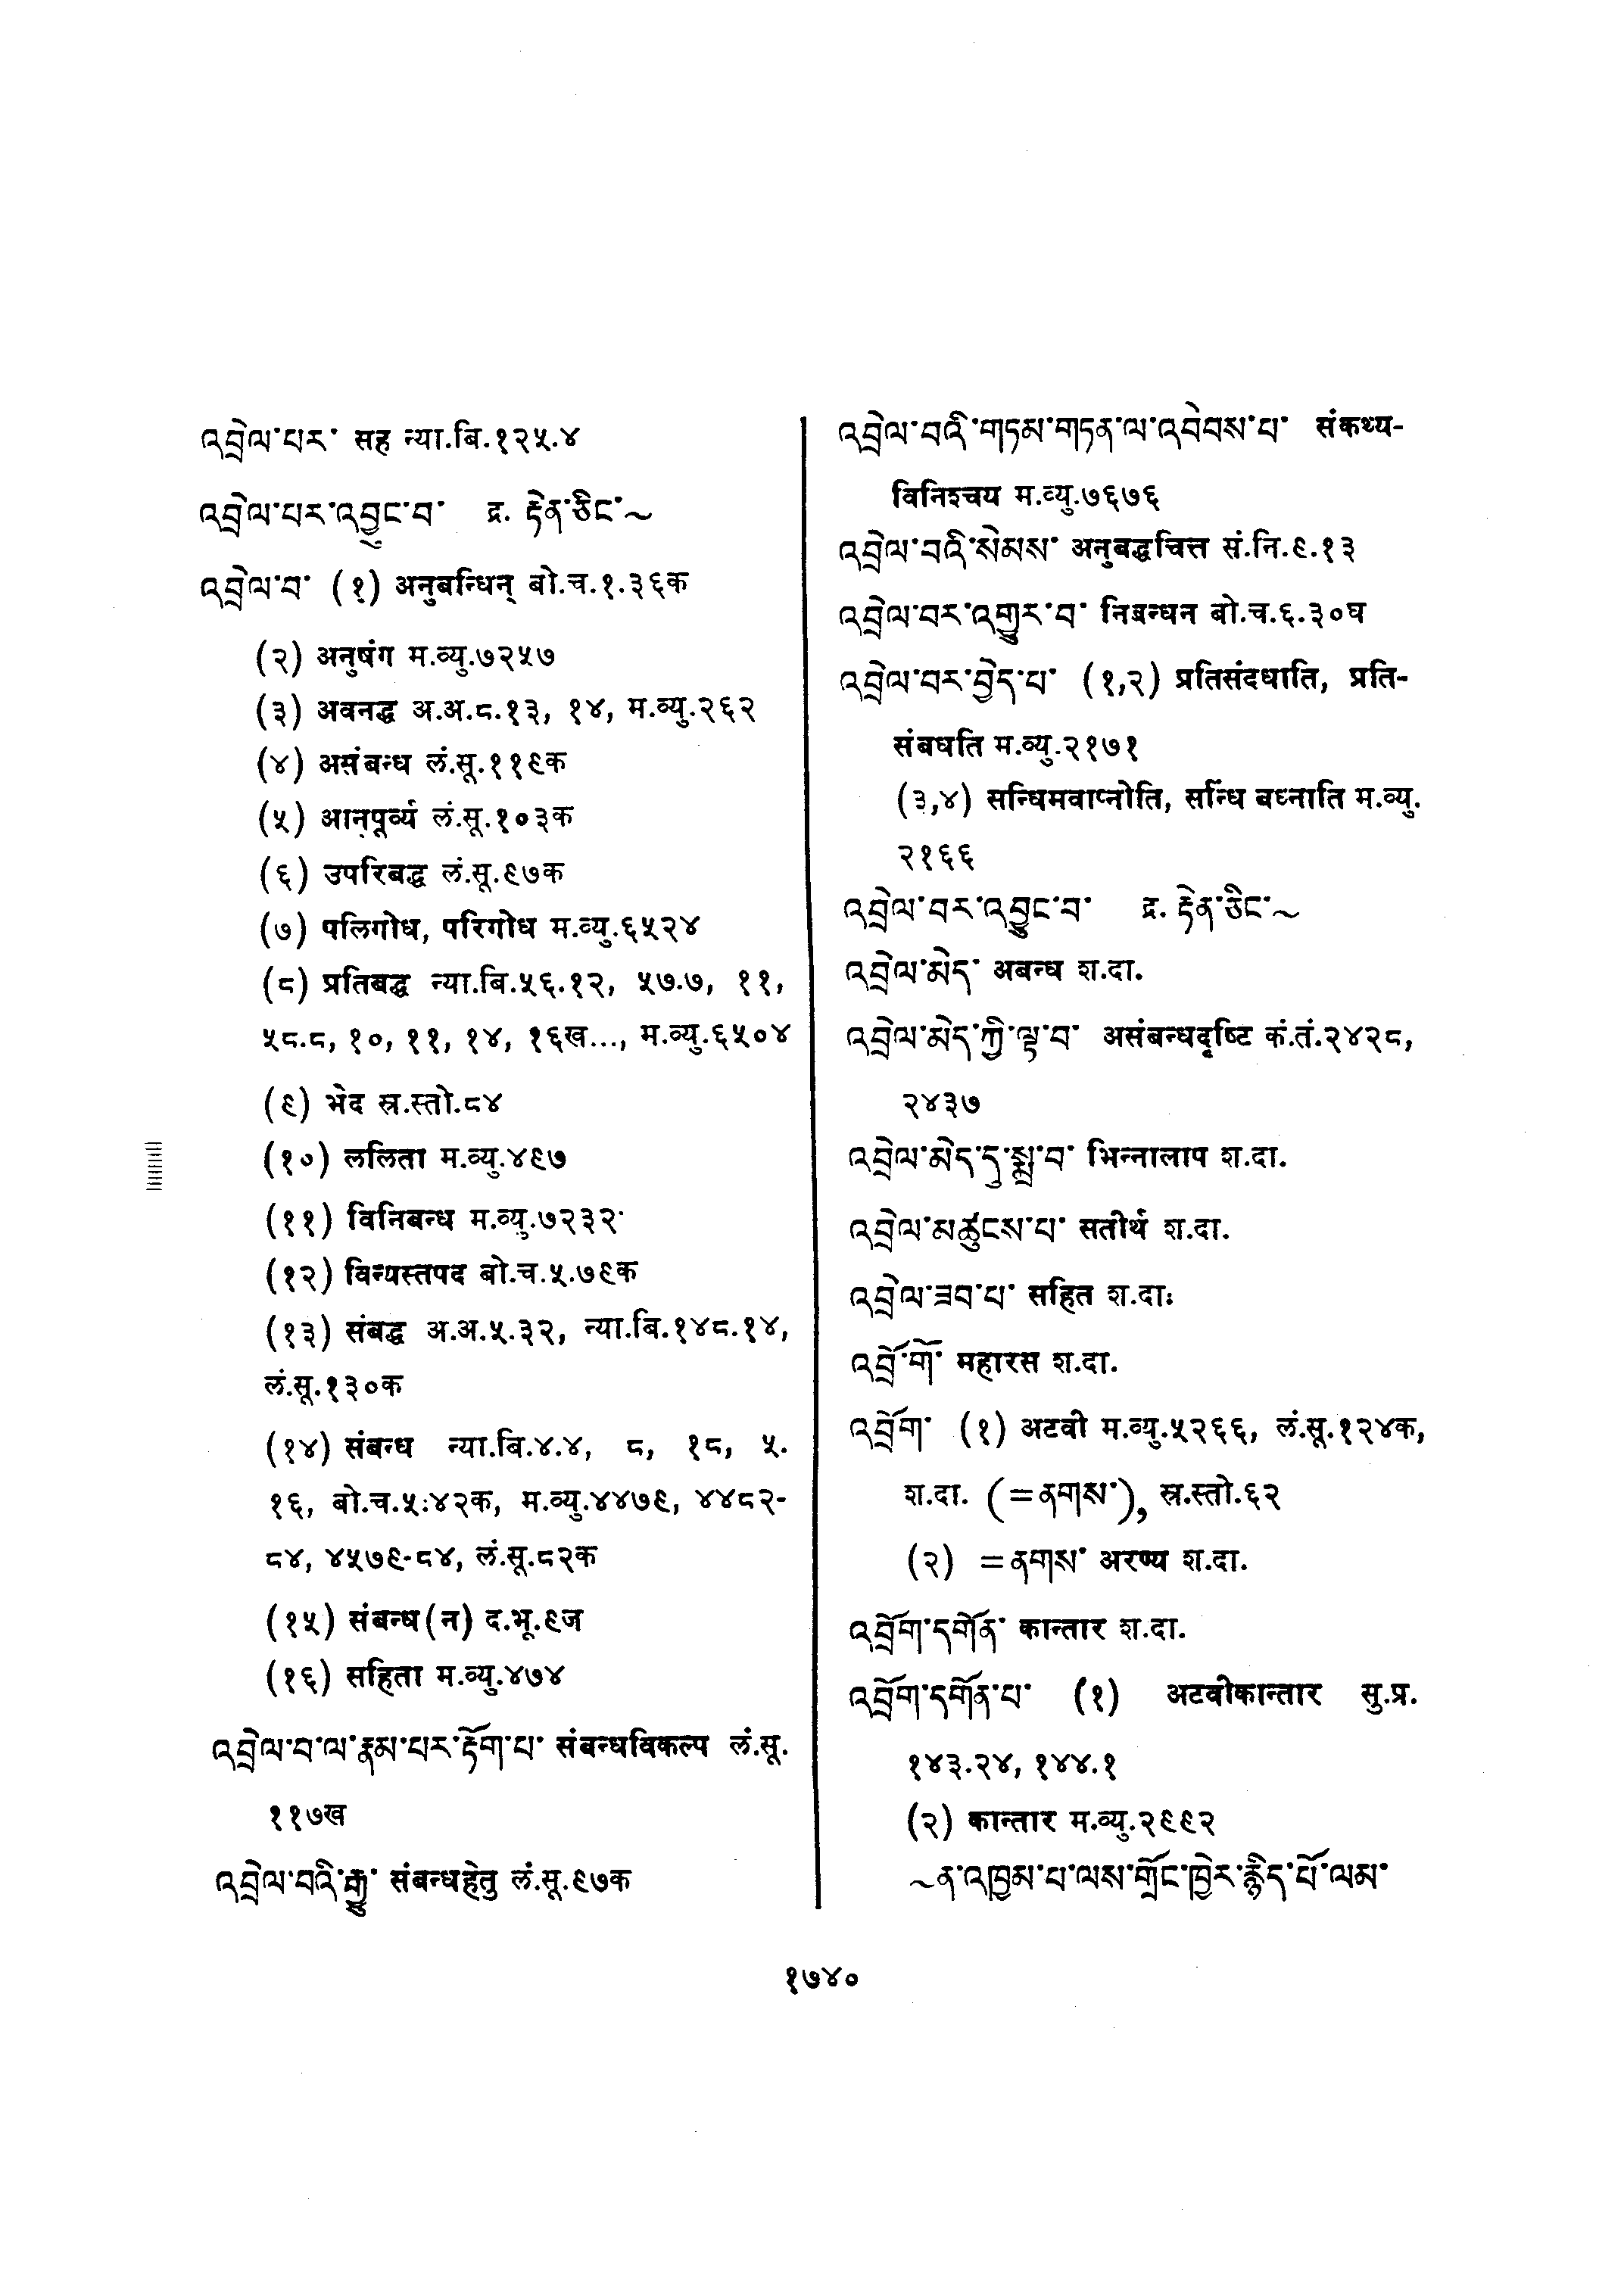 འབྲེལ་པར་ सह न्या.बि.१२५.४
འབྲེལ་པར་འབྱུང་བ་ द्र. རྟེན་ཅིང་~
འབྲེལ་བ་ (१) अनुबन्धिन् बो.च.१.३६क
(२) अनुषंग म.व्यु.७२५७
(३) अवनद्ध अ.अ.८.१३, १४, म.व्यु.२६२
(४) असंबन्ध लं.सू.११९क
(५) आनुपूर्व्य लं.सू.१०३क
(६) उपरिबद्ध लं.सू.९७क
(७) पलिगोध, परिगोध म.व्यु.६५२४
(८) प्रतिबद्ध न्या.बि.५६.१२, ५७.७, ११,
५८.८, १०, ११, १४, १६ख..., म.व्यु.६५०४
(९) भेद स्र.स्तो.८४
(१०) ललिता म.व्यु.४९७
(११) विनिबन्ध म.व्यु.७२३२
(१२) विन्यस्तपद बो.च.५.७९क
(१३) संबद्ध अ.अ.५.३२, न्या.बि.१४८.१४,
लं.सू.१३०क
(१४) संबन्ध न्या.बि.४.४, ८, १८, ५.
१६, बो.च.५:४२क, म.व्यु.४४७९, ४४८२-
८४, ४५७९-८४, लं.सू.८२क
(१५) संबन्ध(न) द.भू.९ज
(१६) सहिता म.व्यु.४७४
འབྲེལ་བ་ལ་རྣམ་པར་རྟོག་པ་ संबन्धविकल्प लं.सू.
११७ख
འབྲེལ་བའི་རྒྱུ་ संबन्धहेतु लं.सू.९७क
འབྲེལ་བའི་གཏམ་གཏན་ལ་འབེབས་པ་ संकथ्य-
विनिश्चय म.व्यु.७६७६
འབྲེལ་བའི་སེམས་ अनुबद्धचित्त सं.नि.९.१३
འབྲེལ་བར་འགྱུར་བ་ निबन्धन बो.च.६.३०घ
འབྲེལ་བར་བྱེད་པ་ (१,२) प्रतिसंदधाति, प्रति-
संबधति म.व्यु.२१७१
(३,४) सन्धिमवाप्नोति, सन्धिं बध्नाति म.व्यु.
२१६६
འབྲེལ་བར་འབྱུང་བ་ द्र. རྟེན་ཅིང་~
འབྲེལ་མེད་ अबन्ध श.दा.
འབྲེལ་མེད་ཀྱི་ལྟ་བ་ असंबन्धदृष्टि कं.तं.२४२८,
२४३७
འབྲེལ་མེད་དུ་སྨྲ་བ་ भिन्नालाप श.दा.
འབྲེལ་མཚུངས་པ་ सतीर्थ श.दा.
འབྲེལ་ཟབ་པ་ सहित श.दा.
འབྲོ་གོ་ महारस श.दा.
འབྲོག་ (१) अटवी म.व्यु.५२६६, लं.सू.१२४क,
श.दा. (=ནགས་), स्र.स्तो.६२
(२) =ནགས་ अरण्य श.दा.
འབྲོག་དགོན་ कान्तार श.दा.
འབྲོག་དགོན་པ་ (१) अटवीकान्तार सु.प्र.
१४३.२४, १४४.१
(२) कान्तार म.व्यु.२९९२
~ན་འཁྱམ་པ་ལས་གྲོང་ཁྱེར་རྙིད་པོ་ལམ་
१७४०